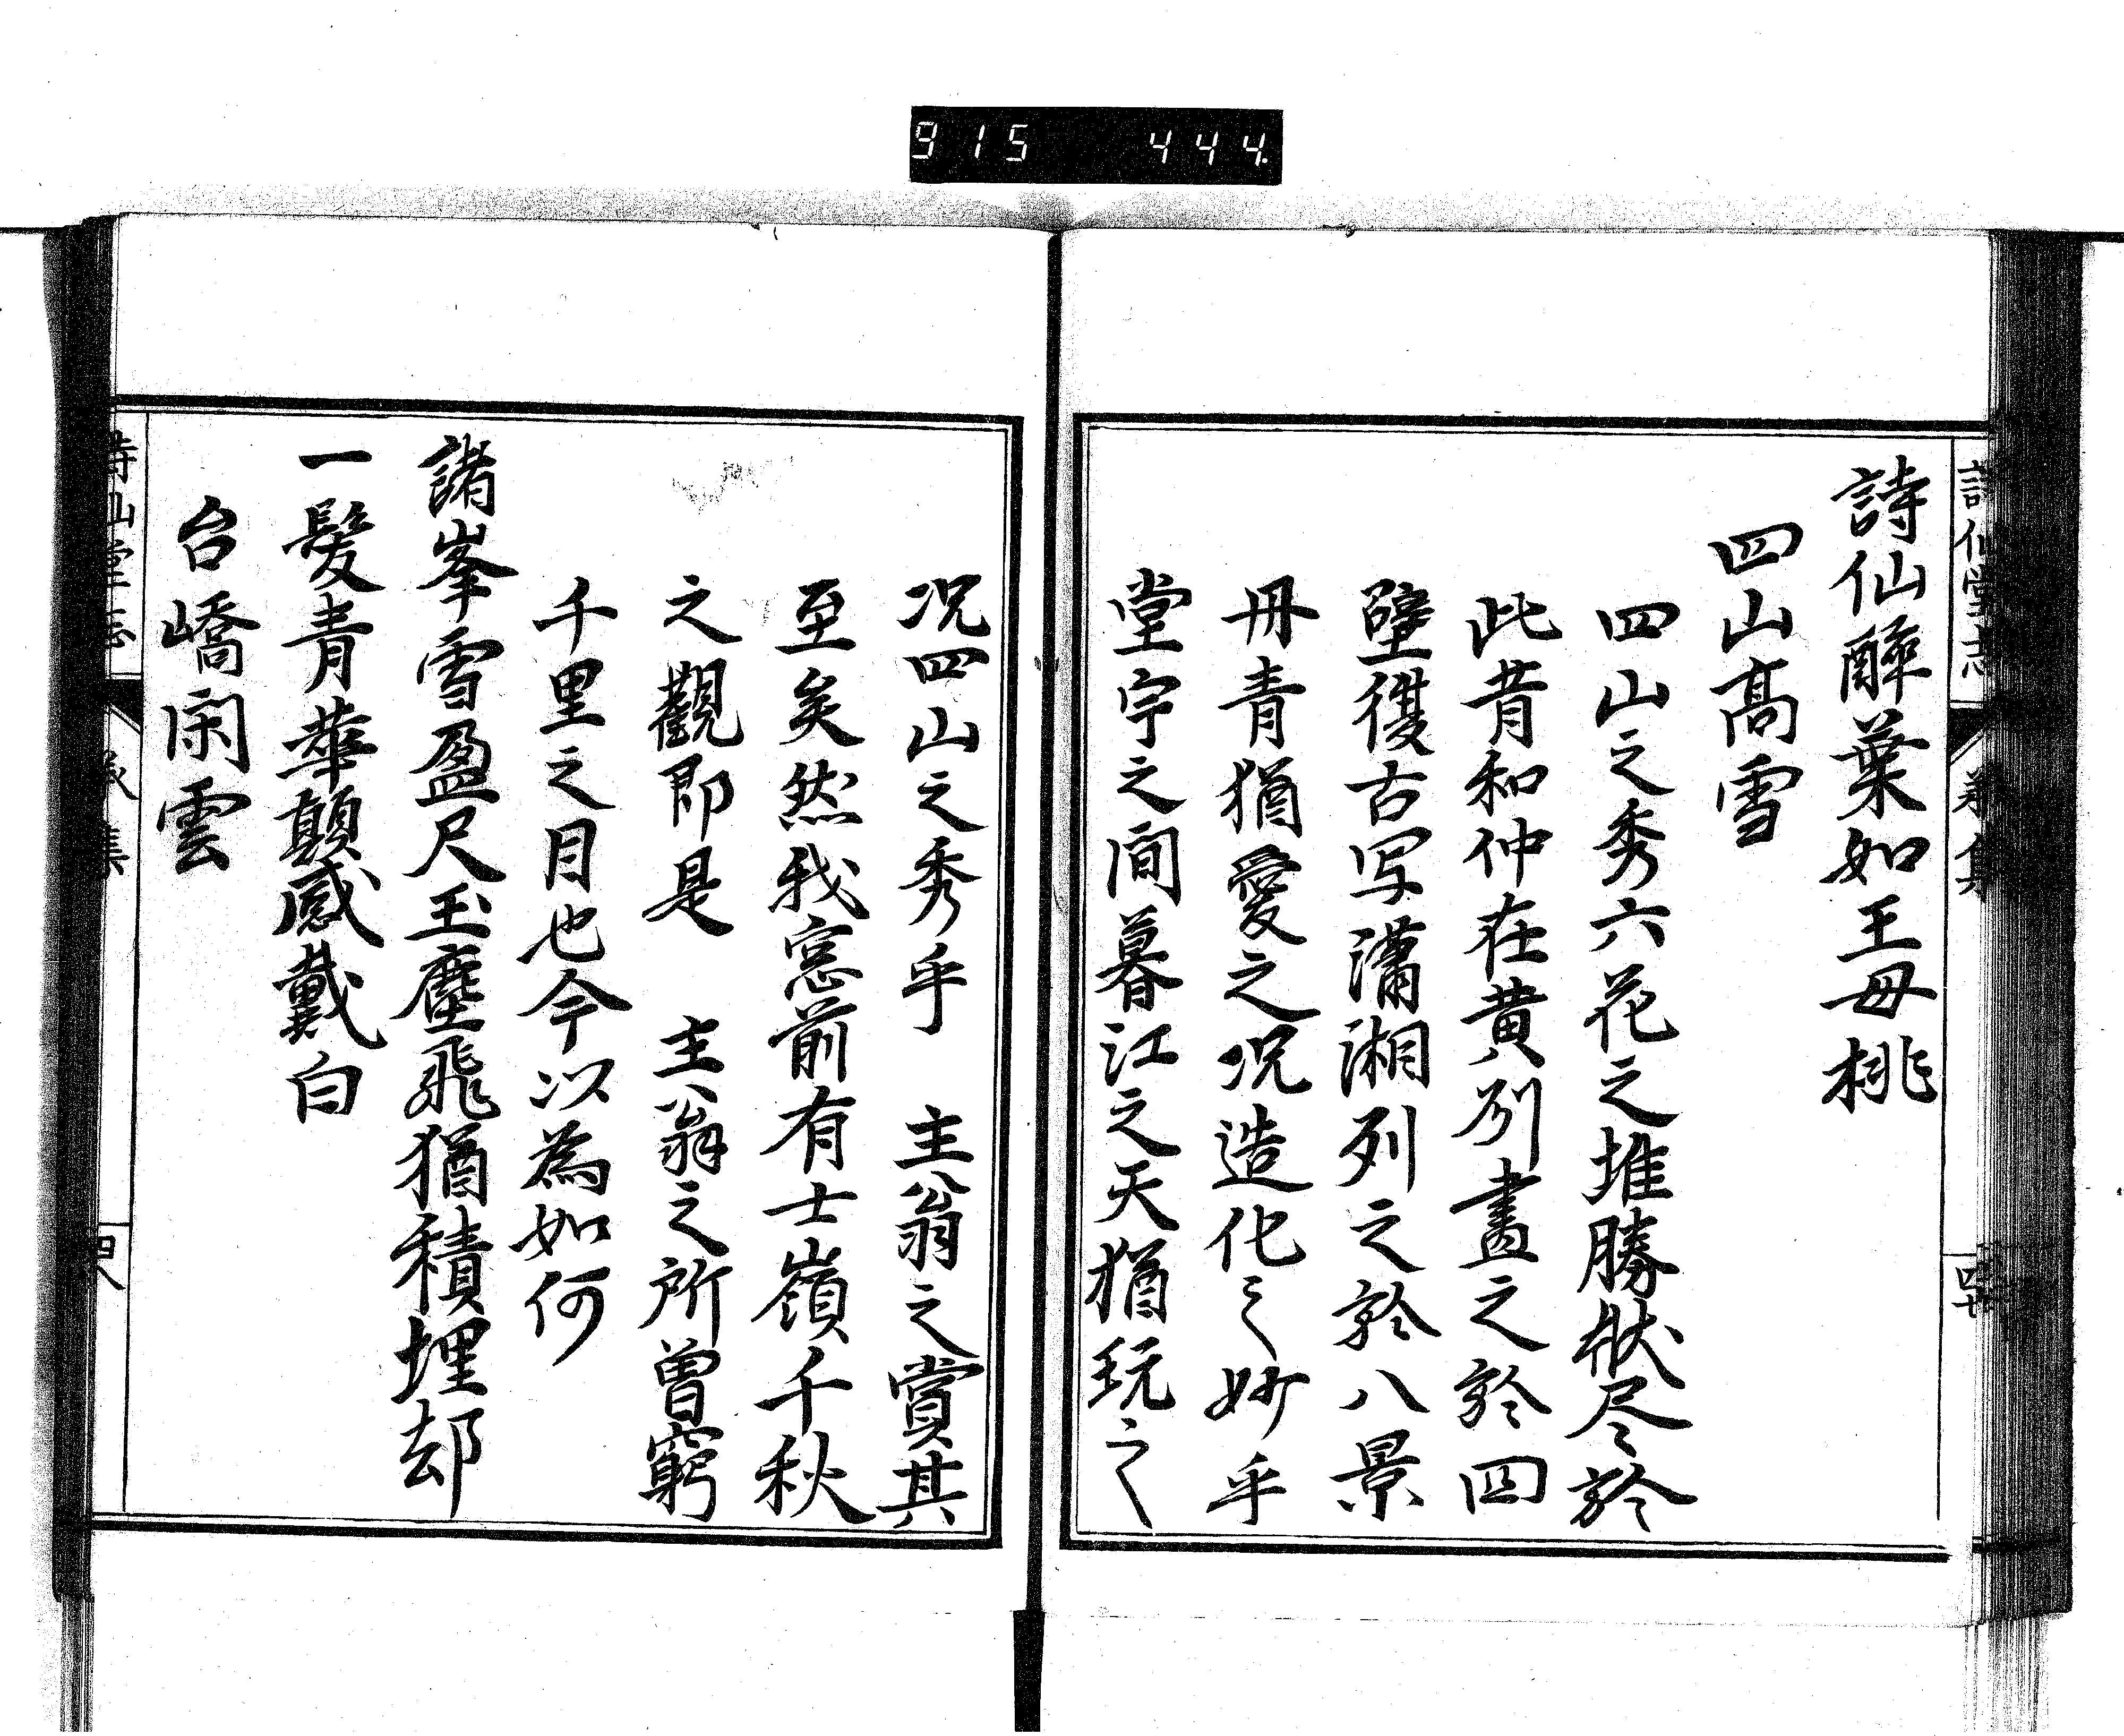 915 444.
詩仙醉葉如王母桃
四山髙雪
四山之秀六花之堆勝狀尽於
此昔和仲在黄列畫之於四
壁復古写瀟湘列之於八景
丹青猶愛之况造化之妙乎
堂宇之間暮江之天猶玩之
况四山之秀乎 主翁之賞其
至矣然我窓前有士嶺千秋
之觀即是 主翁之所曽窮
千里之目也今以為如何
諸峯雪盈尺玉塵飛猶積埋却
一髮青華顛感戴白
台嶠閑雲
詩仙堂志
集
四八